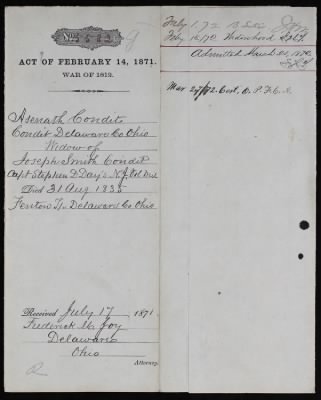 No. 2542
ACT OF FEBRUARY 14, 1871.
WAR OF 1812.
Asenath Condit
Condit Delaware Co Ohio
Widow of
Joseph Smith Condit
Capt Stephen D Day's N.J.
Died 31 Aug 1835
Tp. Delaware Co Ohio
Received July 17, 1871.
Frederick M. Joy
Delaware
Ohio
Attorney.
Widowhood
Admitted March
Mar 27/72 Cert. O. P.